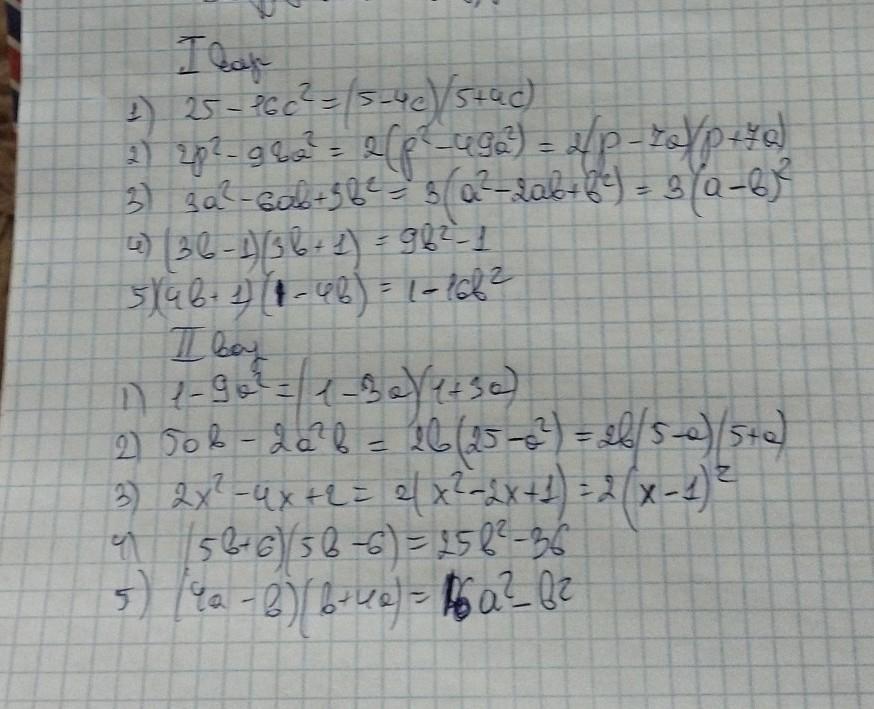 I вар
1) 25 - 16c² = (5-4c)(5+4c)
2) 2p² - 98a² = 2(p² - 49a²) = 2(p - 7a)(p + 7a)
3) 3a² - 6ab + 3b² = 3(a² - 2ab + b²) = 3(a - b)²
4) (3b - 1)(3b + 1) = 9b² - 1
5) (4b + 1)(1 - 4b) = 1 - 16b²
II вар
1) 1 - 9a² = (1 - 3a)(1 + 3a)
2) 50b - 2a²b = 2b(25 - a²) = 2b(5 - a)(5 + a)
3) 2x² - 4x + 2 = 2(x² - 2x + 1) = 2(x - 1)²
4) (5b + 6)(5b - 6) = 25b² - 36
5) (4a - b)(b + 4a) = 16a² - b²